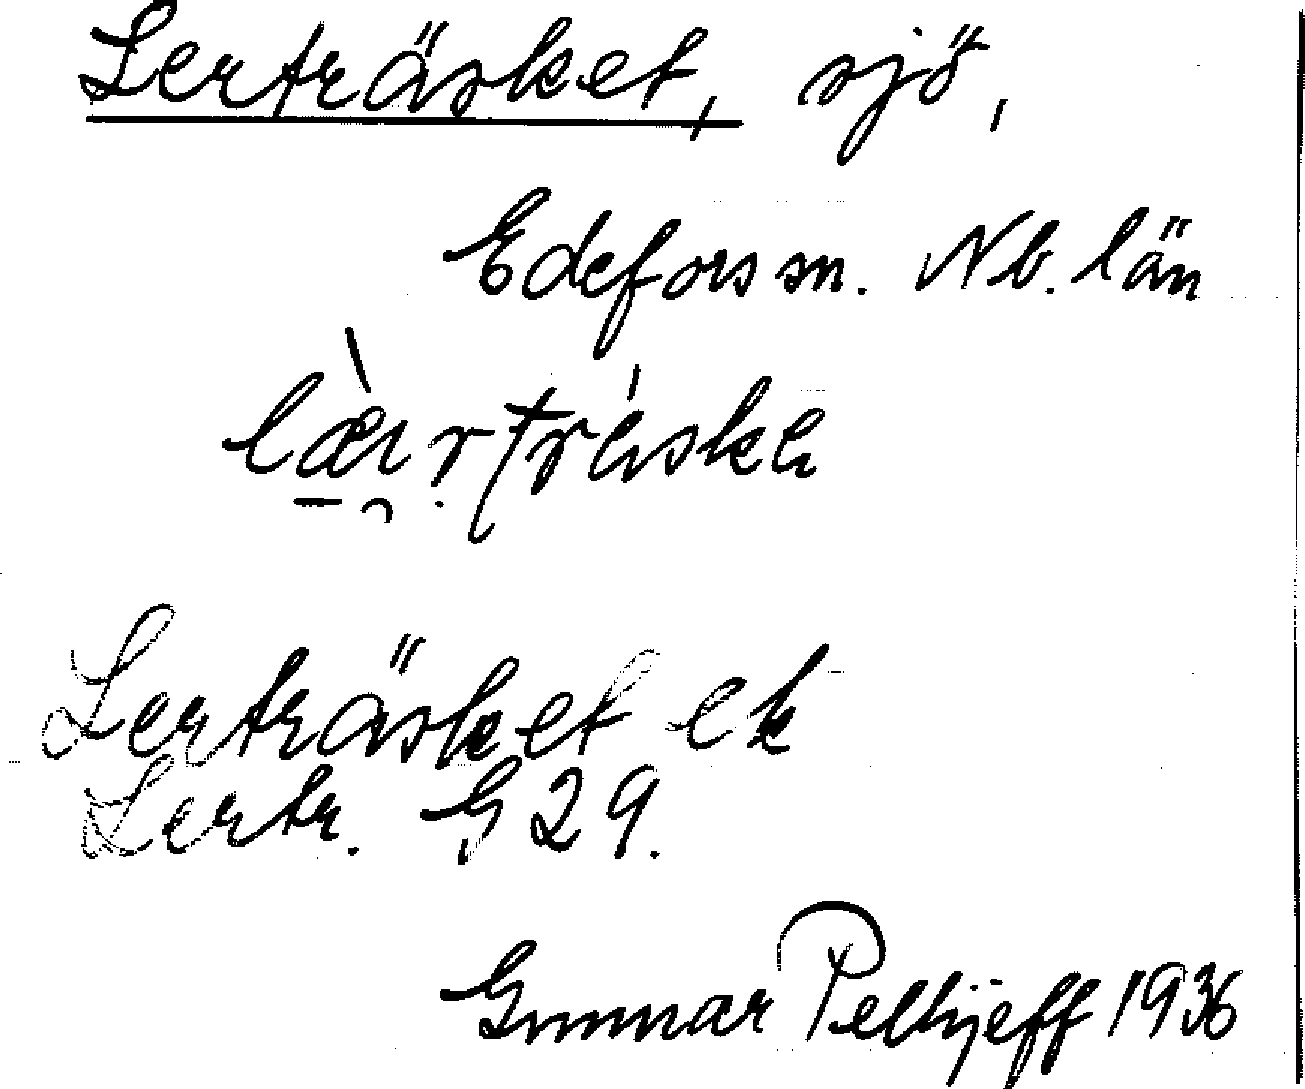 Lerträsket, sjö,
Edefors sn. Nb. län
Lerträsket ek
Lertr. G 29.
Gunnar Pellijeff 1936